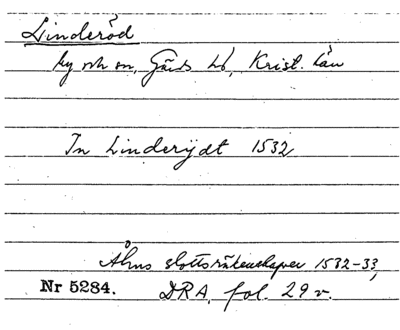 Linderöd
by och sn, Gärds hd, Krist. län
In Linderijdt 1532
Åhus slottsräkenskaper 1532-33,
Nr 5284. DRA, fol. 29 v.